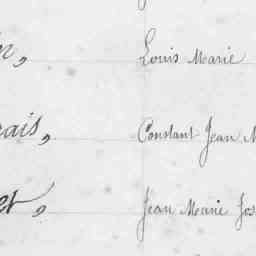 Louis Marie
ais, Constant Jean M
et, Jean Marie Jos